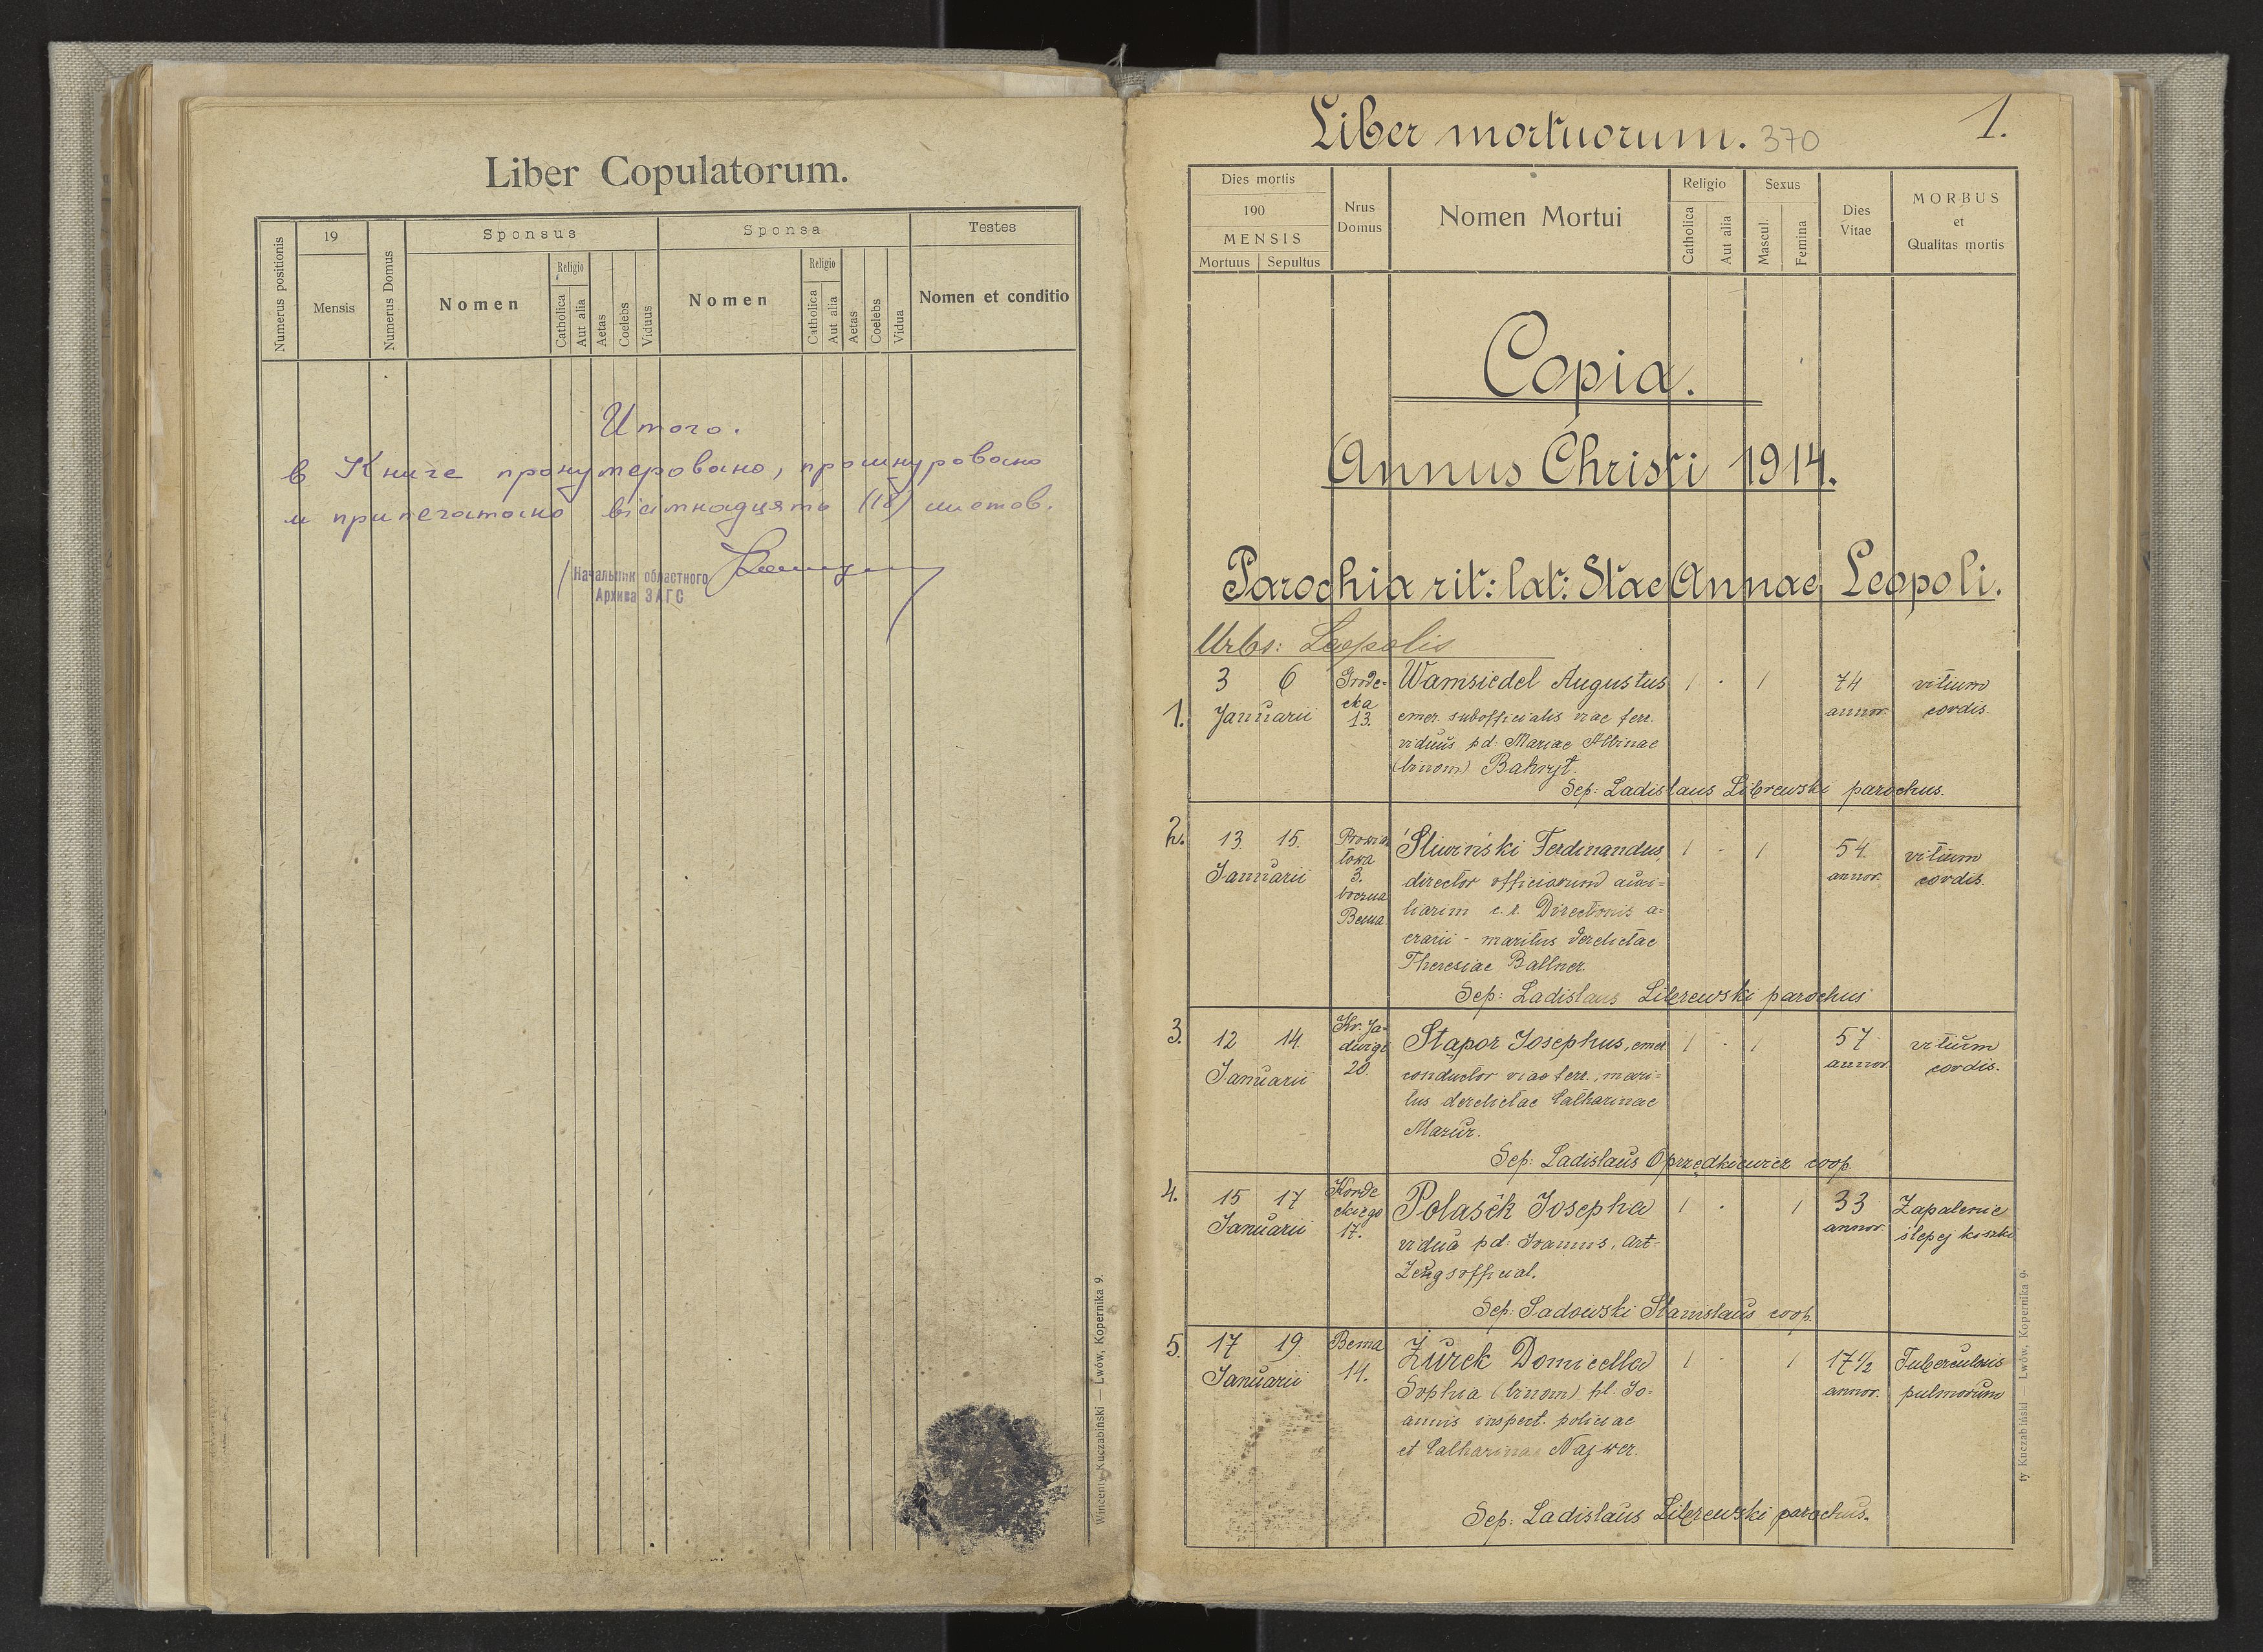 Liber Copulatorum.
Numerus positionis
19
Mensis
Numerus Domus
Sponsus
Nomen
Religio
Catholica
Aut alia
Aetas
Coelebs
Viduus
Sponsa
Nomen
Religio
Catholica
Aut alia
Aetas
Coelebs
Vidua
Testes
Nomen et conditio
Итого.
в Книге пронумеровано, прошнуровано
и припечатано вісімнадцять (18) листов.
Начальник областного
Архива ЗАГС
Wincenty Kuczabiński — Lwów, Kopernika 9.
Liber mortuorum. 370
1.
Dies mortis
190
MENSIS
Mortuus Sepultus
Nrus
Domus
Nomen Mortui
Religio
Catholica
Aut alia
Sexus
Mascul.
Femina
Dies
Vitae
MORBUS
et
Qualitas mortis
Copia.
Annus Christi 1914.
Parochia rit: lat: Stae Annae Leopoli.
Urbs: Leopolis
1.
3 6
Januarii
Grode-
cka
13.
Wamsiedel Augustus
emer. subofficialis viae ferr.
viduus pd: Mariae Albinae
(binom) Bahryt.
1 · 1
74
annor.
vitium
cordis.
Sep: Ladislaus Librewski parochus.
2.
13. 15.
Januarii
Prowian
towa
3.
boczna
Bema
Śliwiński Ferdinandus,
director officiorum auxi-
liarim c. r. Directionis a-
erarii - maritus derelictae
Theresiae Ballner.
1 - 1
54.
annor.
vitium
cordis.
Sep: Ladislaus Librewski parochus
3.
12 14.
Januarii
Kr. Ja-
dwigi
20.
Stąpor Josephus, emer.
conductor viae ferr., mari-
tus derelictae Catharinae
Mazur.
1 · 1
57
annor.
vitium
cordis.
Sep: Ladislaus Oprzędkiewicz coop.
4.
15 17
Januarii
Korde
ckiego
17.
Polasek Josepha
vidua pd: Joannis, Art-
Zeugsofficial.
1 · 1
33
annor.
Zapalenie
ślepej kiszki
Sep: Sadowski Stanislaus coop.
5.
17 19.
Januarii
Bema
14.
Żurek Domicella
Sophia (binom) fil: Jo-
annis inspect. policiae
et Catharinae Najwer.
1 · 1
17 1/2
annor.
Tuberculosis
pulmorum
Sep: Ladislaus Librewski parochus.
ty Kuczabiński — Lwów, Kopernika 9.